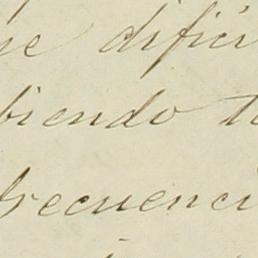 ue difíci
biendo to
frecuenci